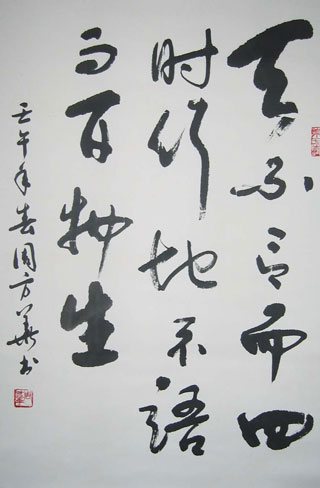 天不言而四
时行地不语
而百物生
壬午年春周方华书